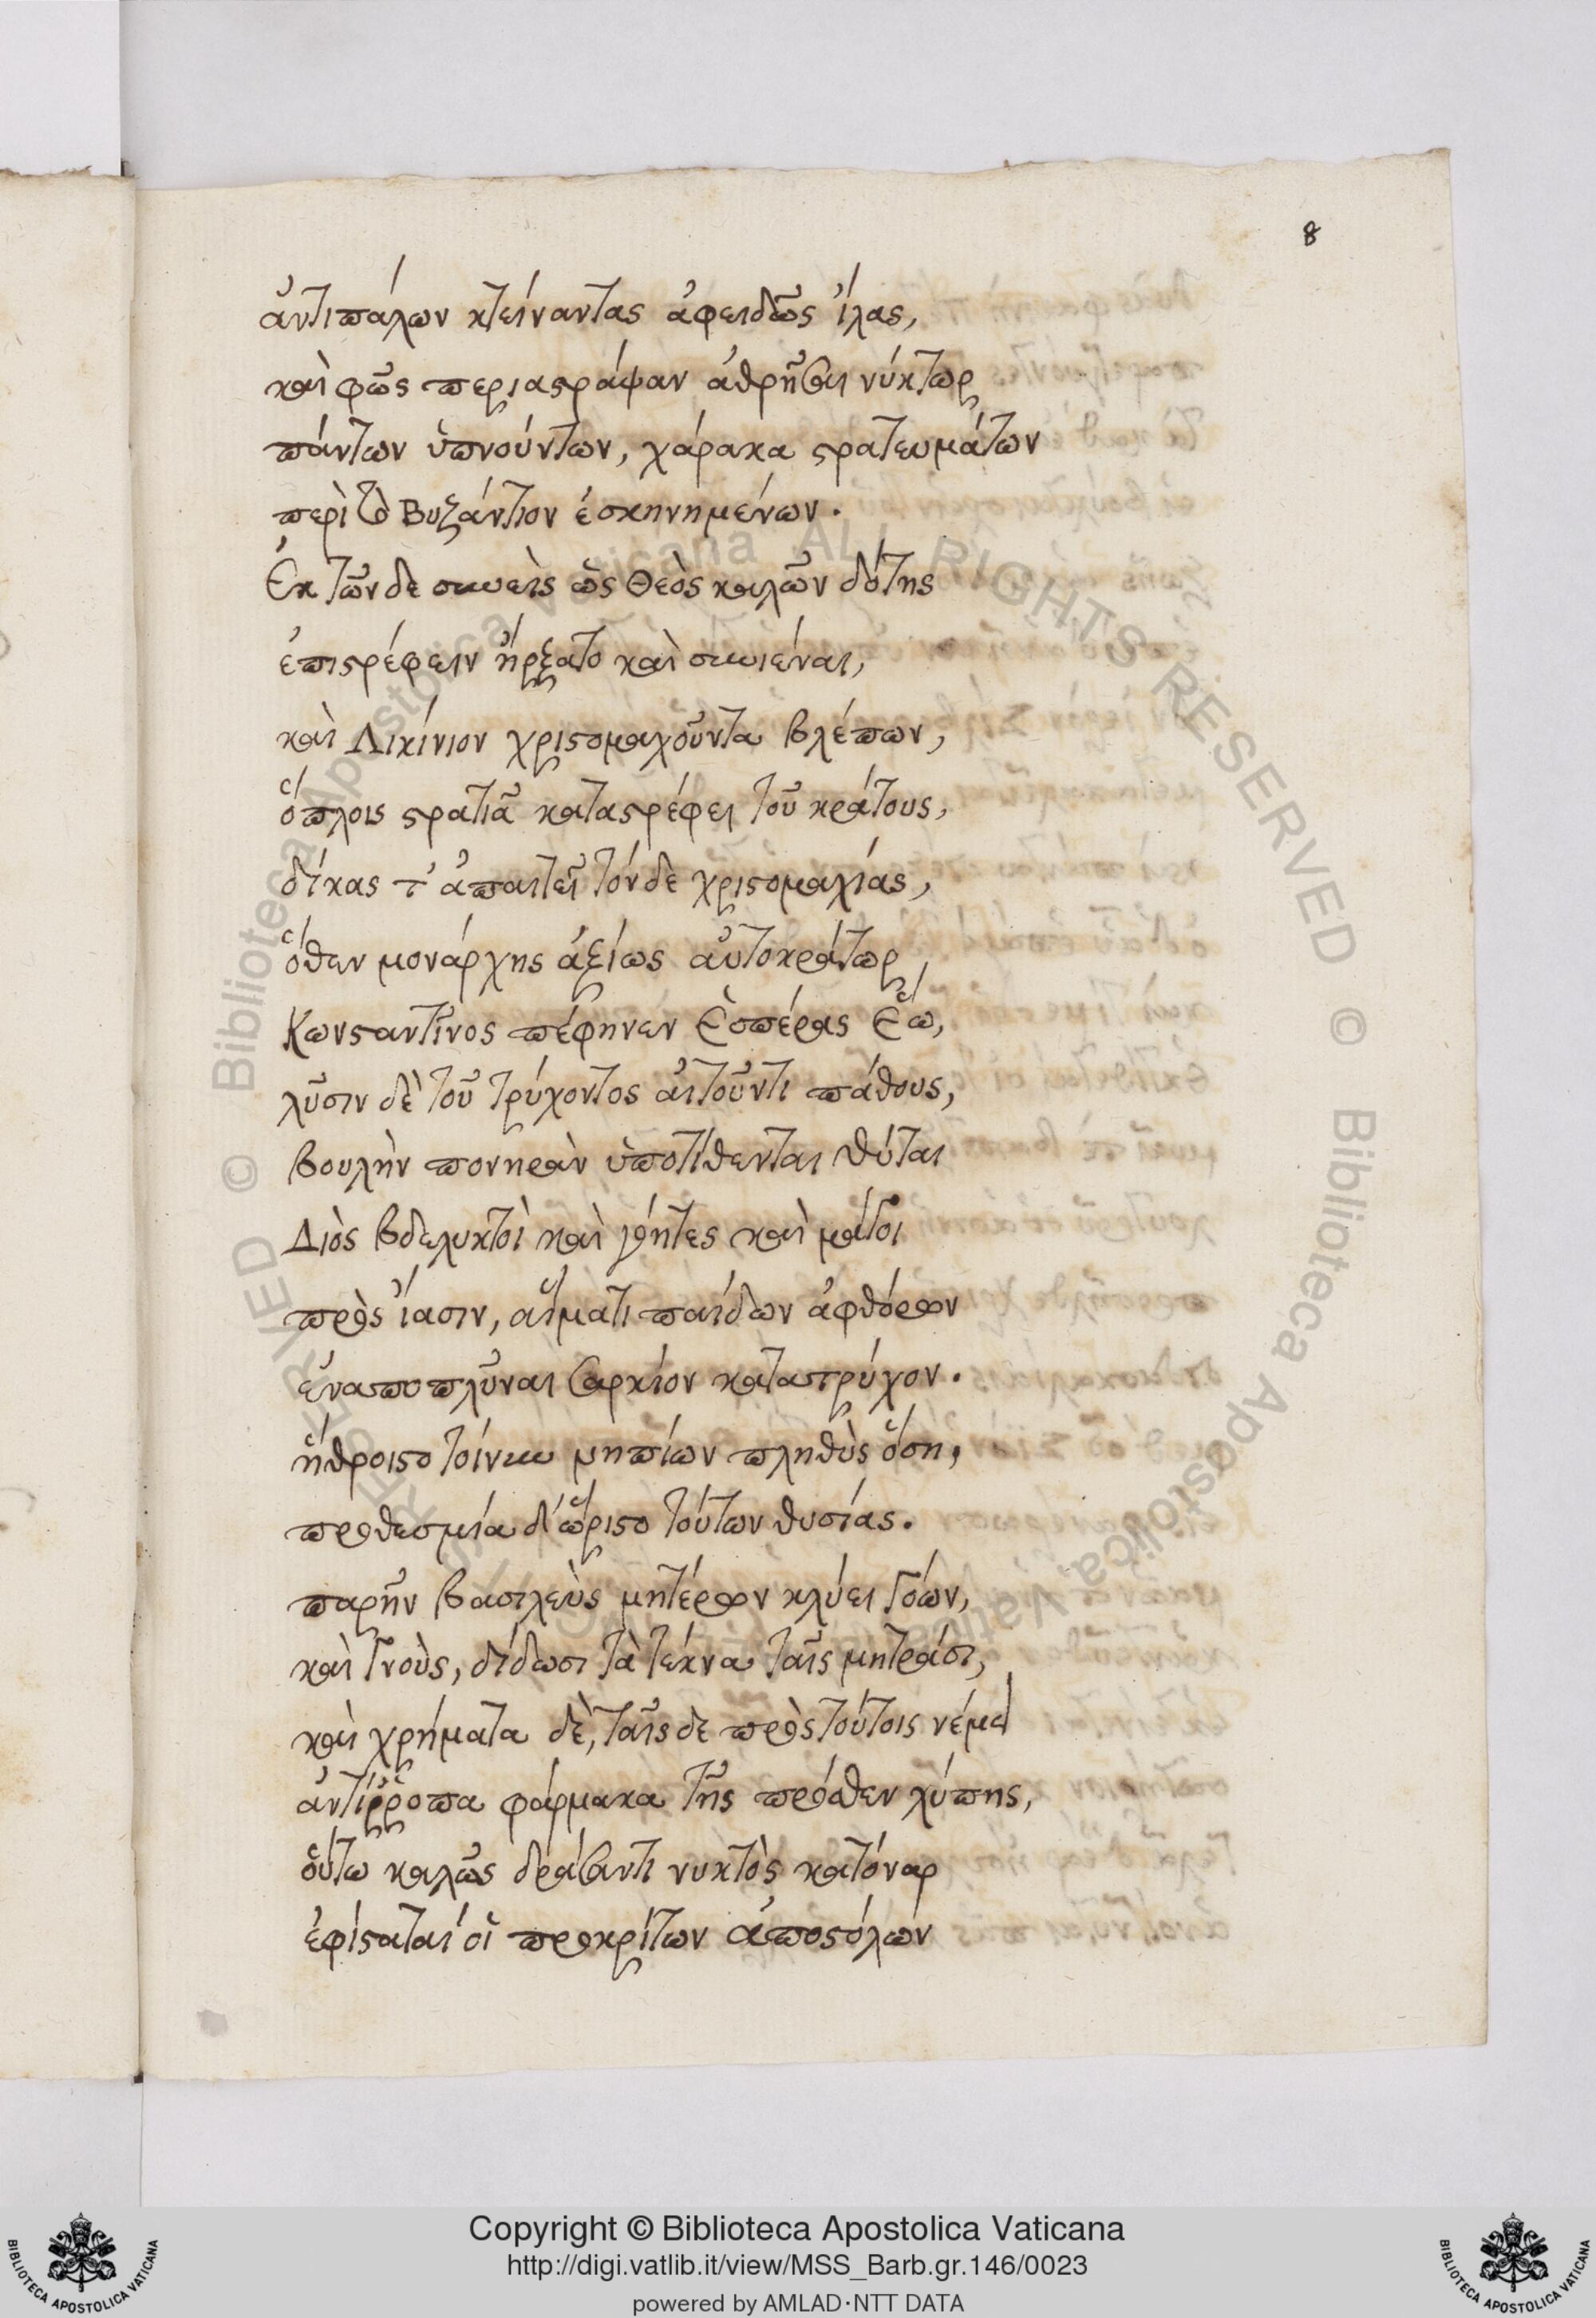 8
ἀντιπάλων κτείναντας ἀφειδῶς ἴλας,
καὶ φῶς περιαστράψαν ἀθρῆσαι νύκτωρ
πάντων ὑπνούντων, χάρακα στρατευμάτων
περὶ τὸ Βυζάντιον ἐσκηνημένων.
Ἐκ τῶνδε συνεὶς ὡς Θεὸς καλῶν δότης
ἐπιστρέφειν ἤρξατο καὶ συνιέναι,
καὶ Λικίνιον χριστομαχοῦντα βλέπων,
ὅπλοις στρατιᾷ καταστρέφει τοῦ κράτους,
δίκας τ' ἀπαιτεῖ τόνδε χριστομαχίας,
ὅθεν μονάρχης ἀξίως αὐτοκράτωρ
Κωνσταντῖνος πέφηνεν Ἑσπέρας Ἕω,
λῦσιν δὲ τοῦ τρύχοντος αἰτοῦντι πάθους,
βουλὴν πονηρὰν ὑποτίθενται θύται
Διὸς βδελυκτοὶ καὶ γόητες καὶ μάγοι
πρὸς ἴασιν, αἵματι παίδων ἀφθόρων
ἐναποπλῦναι σαρκίον κατατρύχον.
ἤθροιστο τοίνυν νηπίων πληθὺς ὅση,
προθεσμία δ' ὥριστο τούτων θυσίας.
παρῆν βασιλεὺς μητέρων κλύει γόων,
καὶ γνοὺς, δίδωσι τὰ τέκνα ταῖς μητράσι,
καὶ χρήματα δὲ, ταῖσδε πρὸς τούτοις νέμει
ἀντίῤῥοπα φάρμακα τῆς πρόσθεν λύπης,
οὕτω καλῶς δράσαντι νυκτὸς κατόναρ
ἐφίσταταί οἱ προκρίτων ἀποστόλων
Copyright © Biblioteca Apostolica Vaticana
http://digi.vatlib.it/view/MSS_Barb.gr.146/0023
powered by AMLAD·NTT DATA